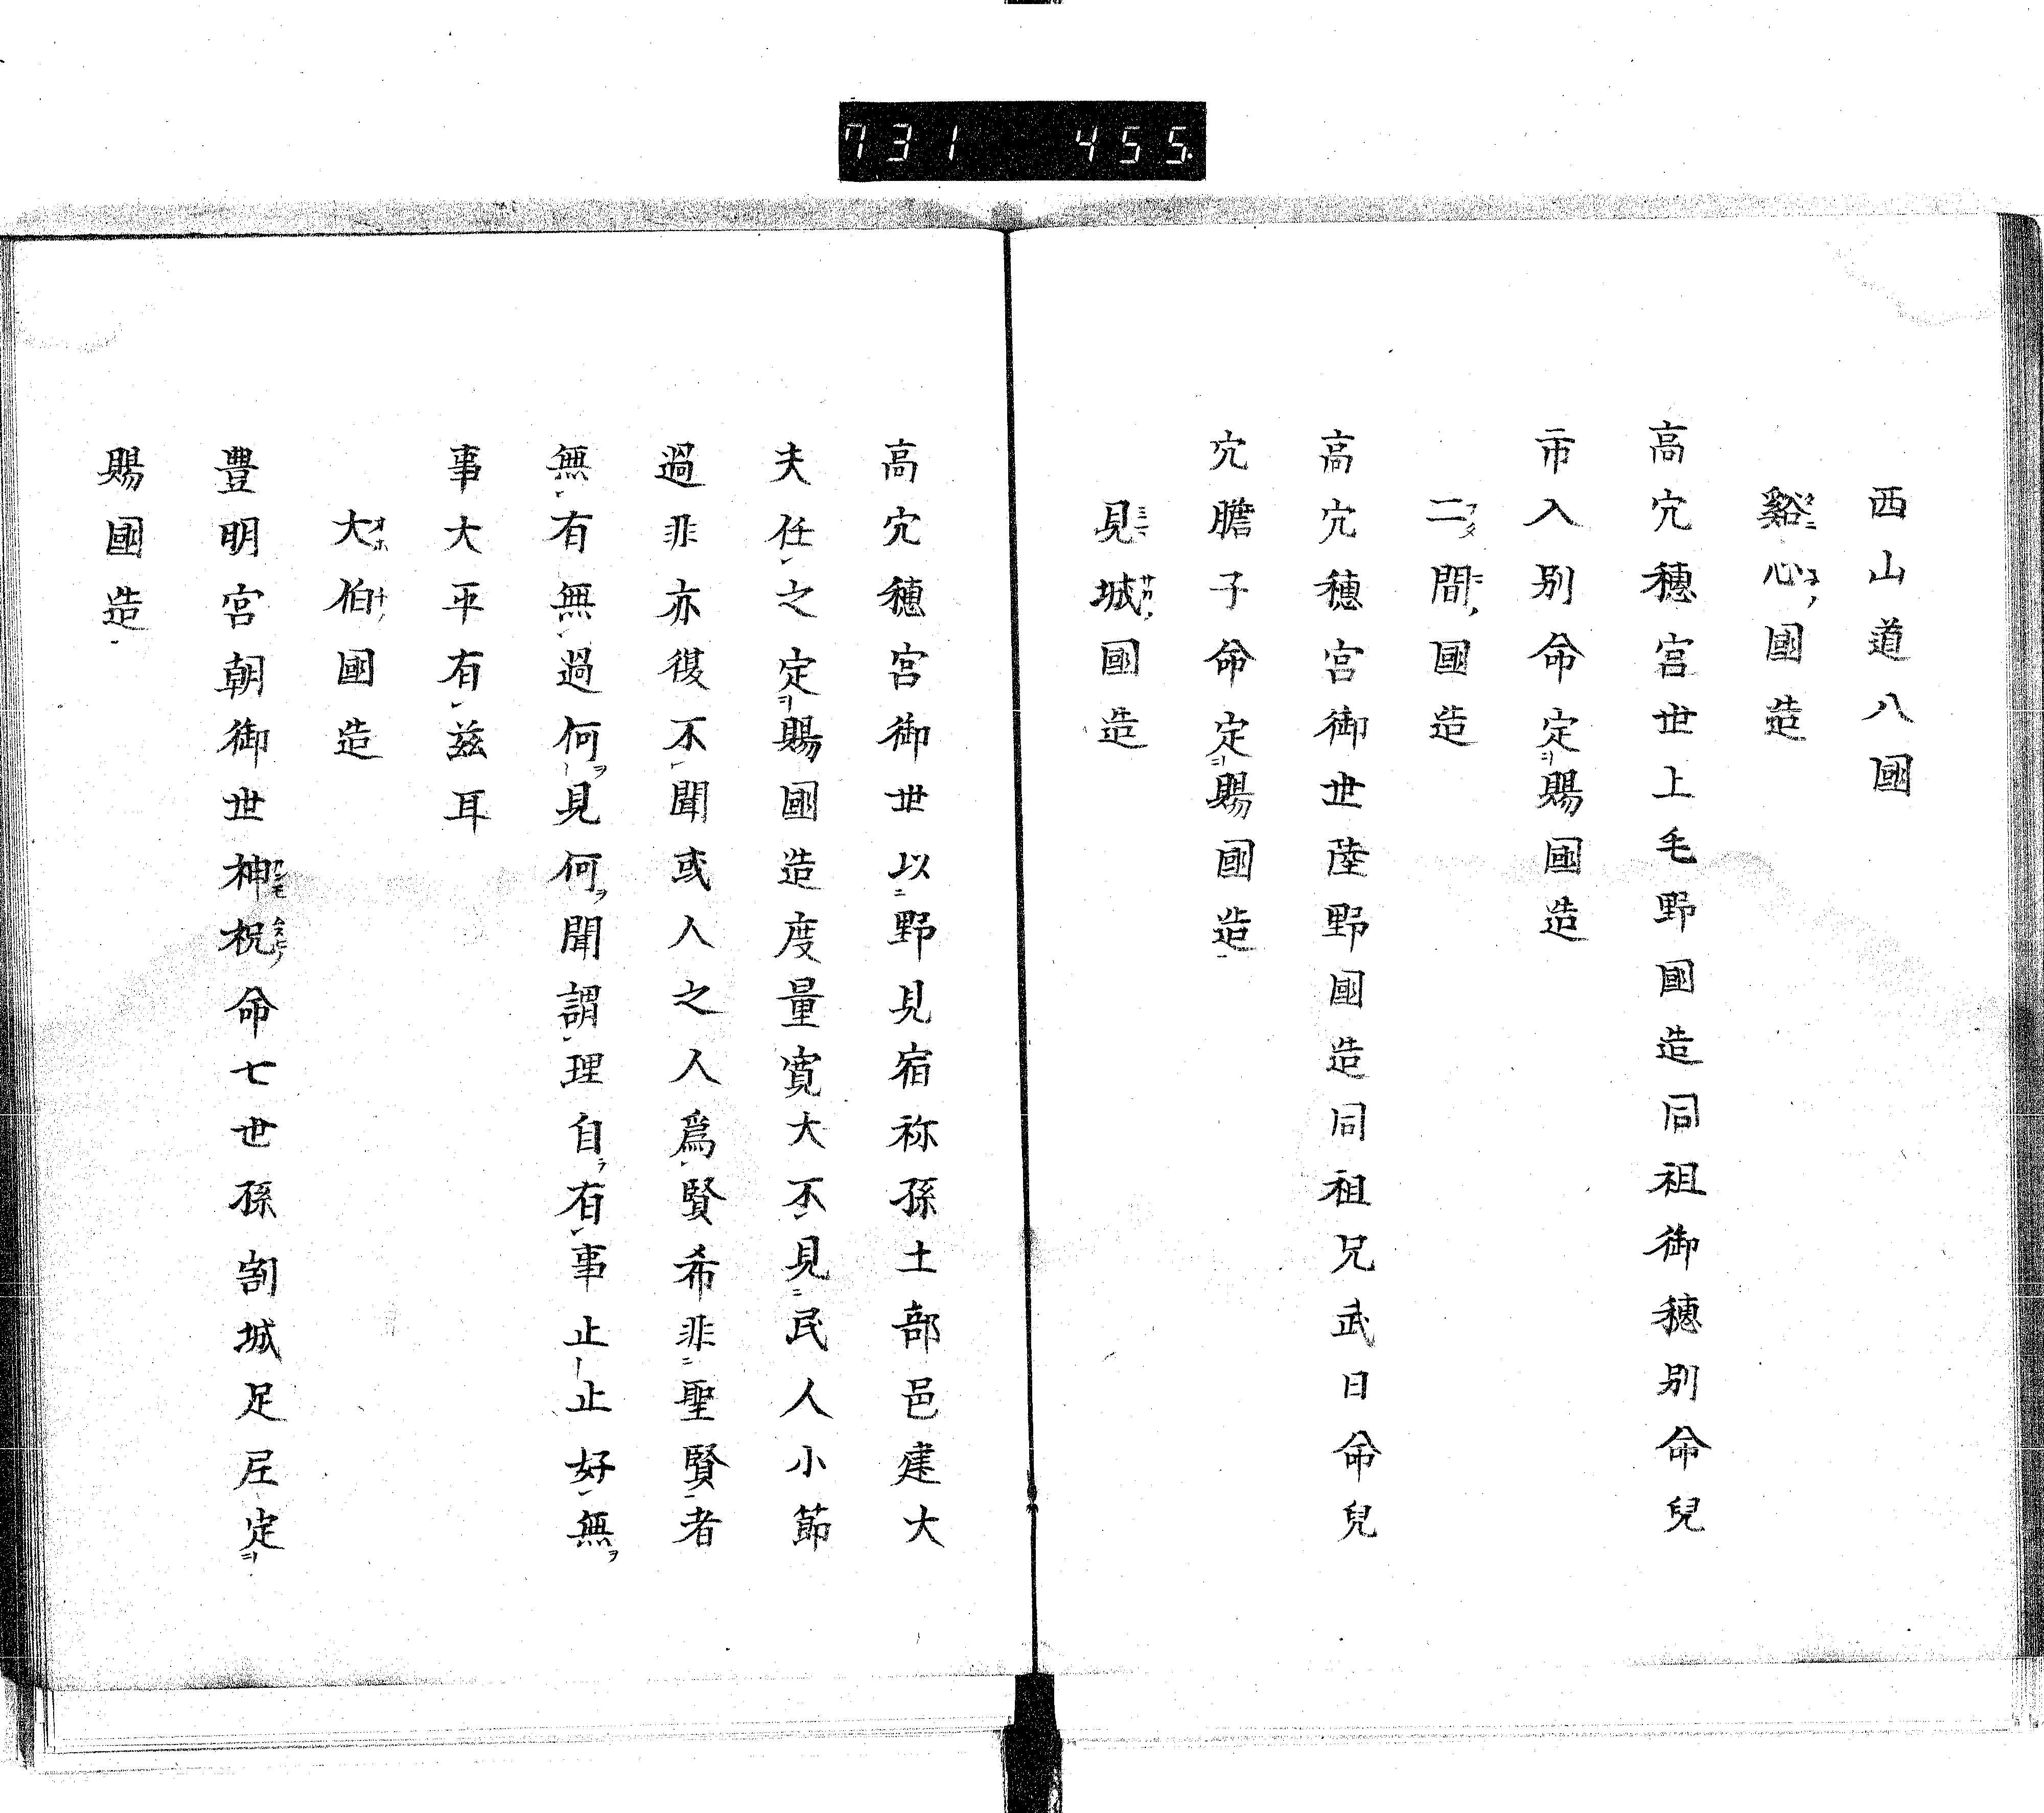 731 455
西山道八國
谿心國造
高穴穗宮世上毛野國造同祖御穗別命兒
市入別命定賜國造
二間國造
高穴穗宮御世陸野國造同祖兄武日命兒
穴膽子命定賜國造
見城國造
高穴穗宮御世以野見宿祢孫土部邑建大
夫任之定賜國造度量寛大不見民人小節
過非亦復不聞或人之人爲賢希非聖賢者
無有無過何見何聞謂理自有事止止好無
事大平有茲耳
大伯國造
豊明宮朝御世神祝命七世孫割城足尼定
賜國造